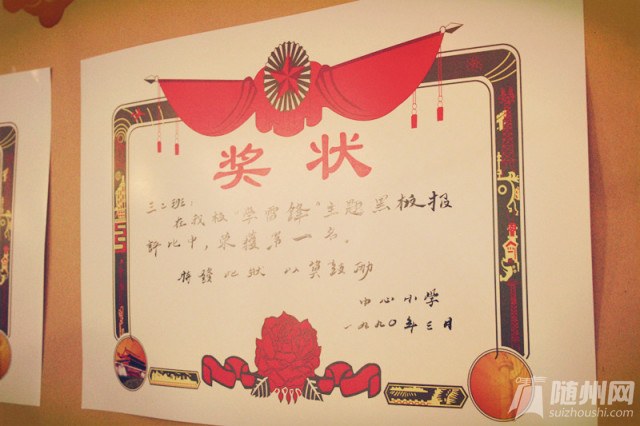 奖状
三二班:
在我校"学雷锋"主题黑板报
评比中,荣获第一名。
特发此状 以资鼓励
中心小学
一九九〇年三月
随州网
suizhoushi.com